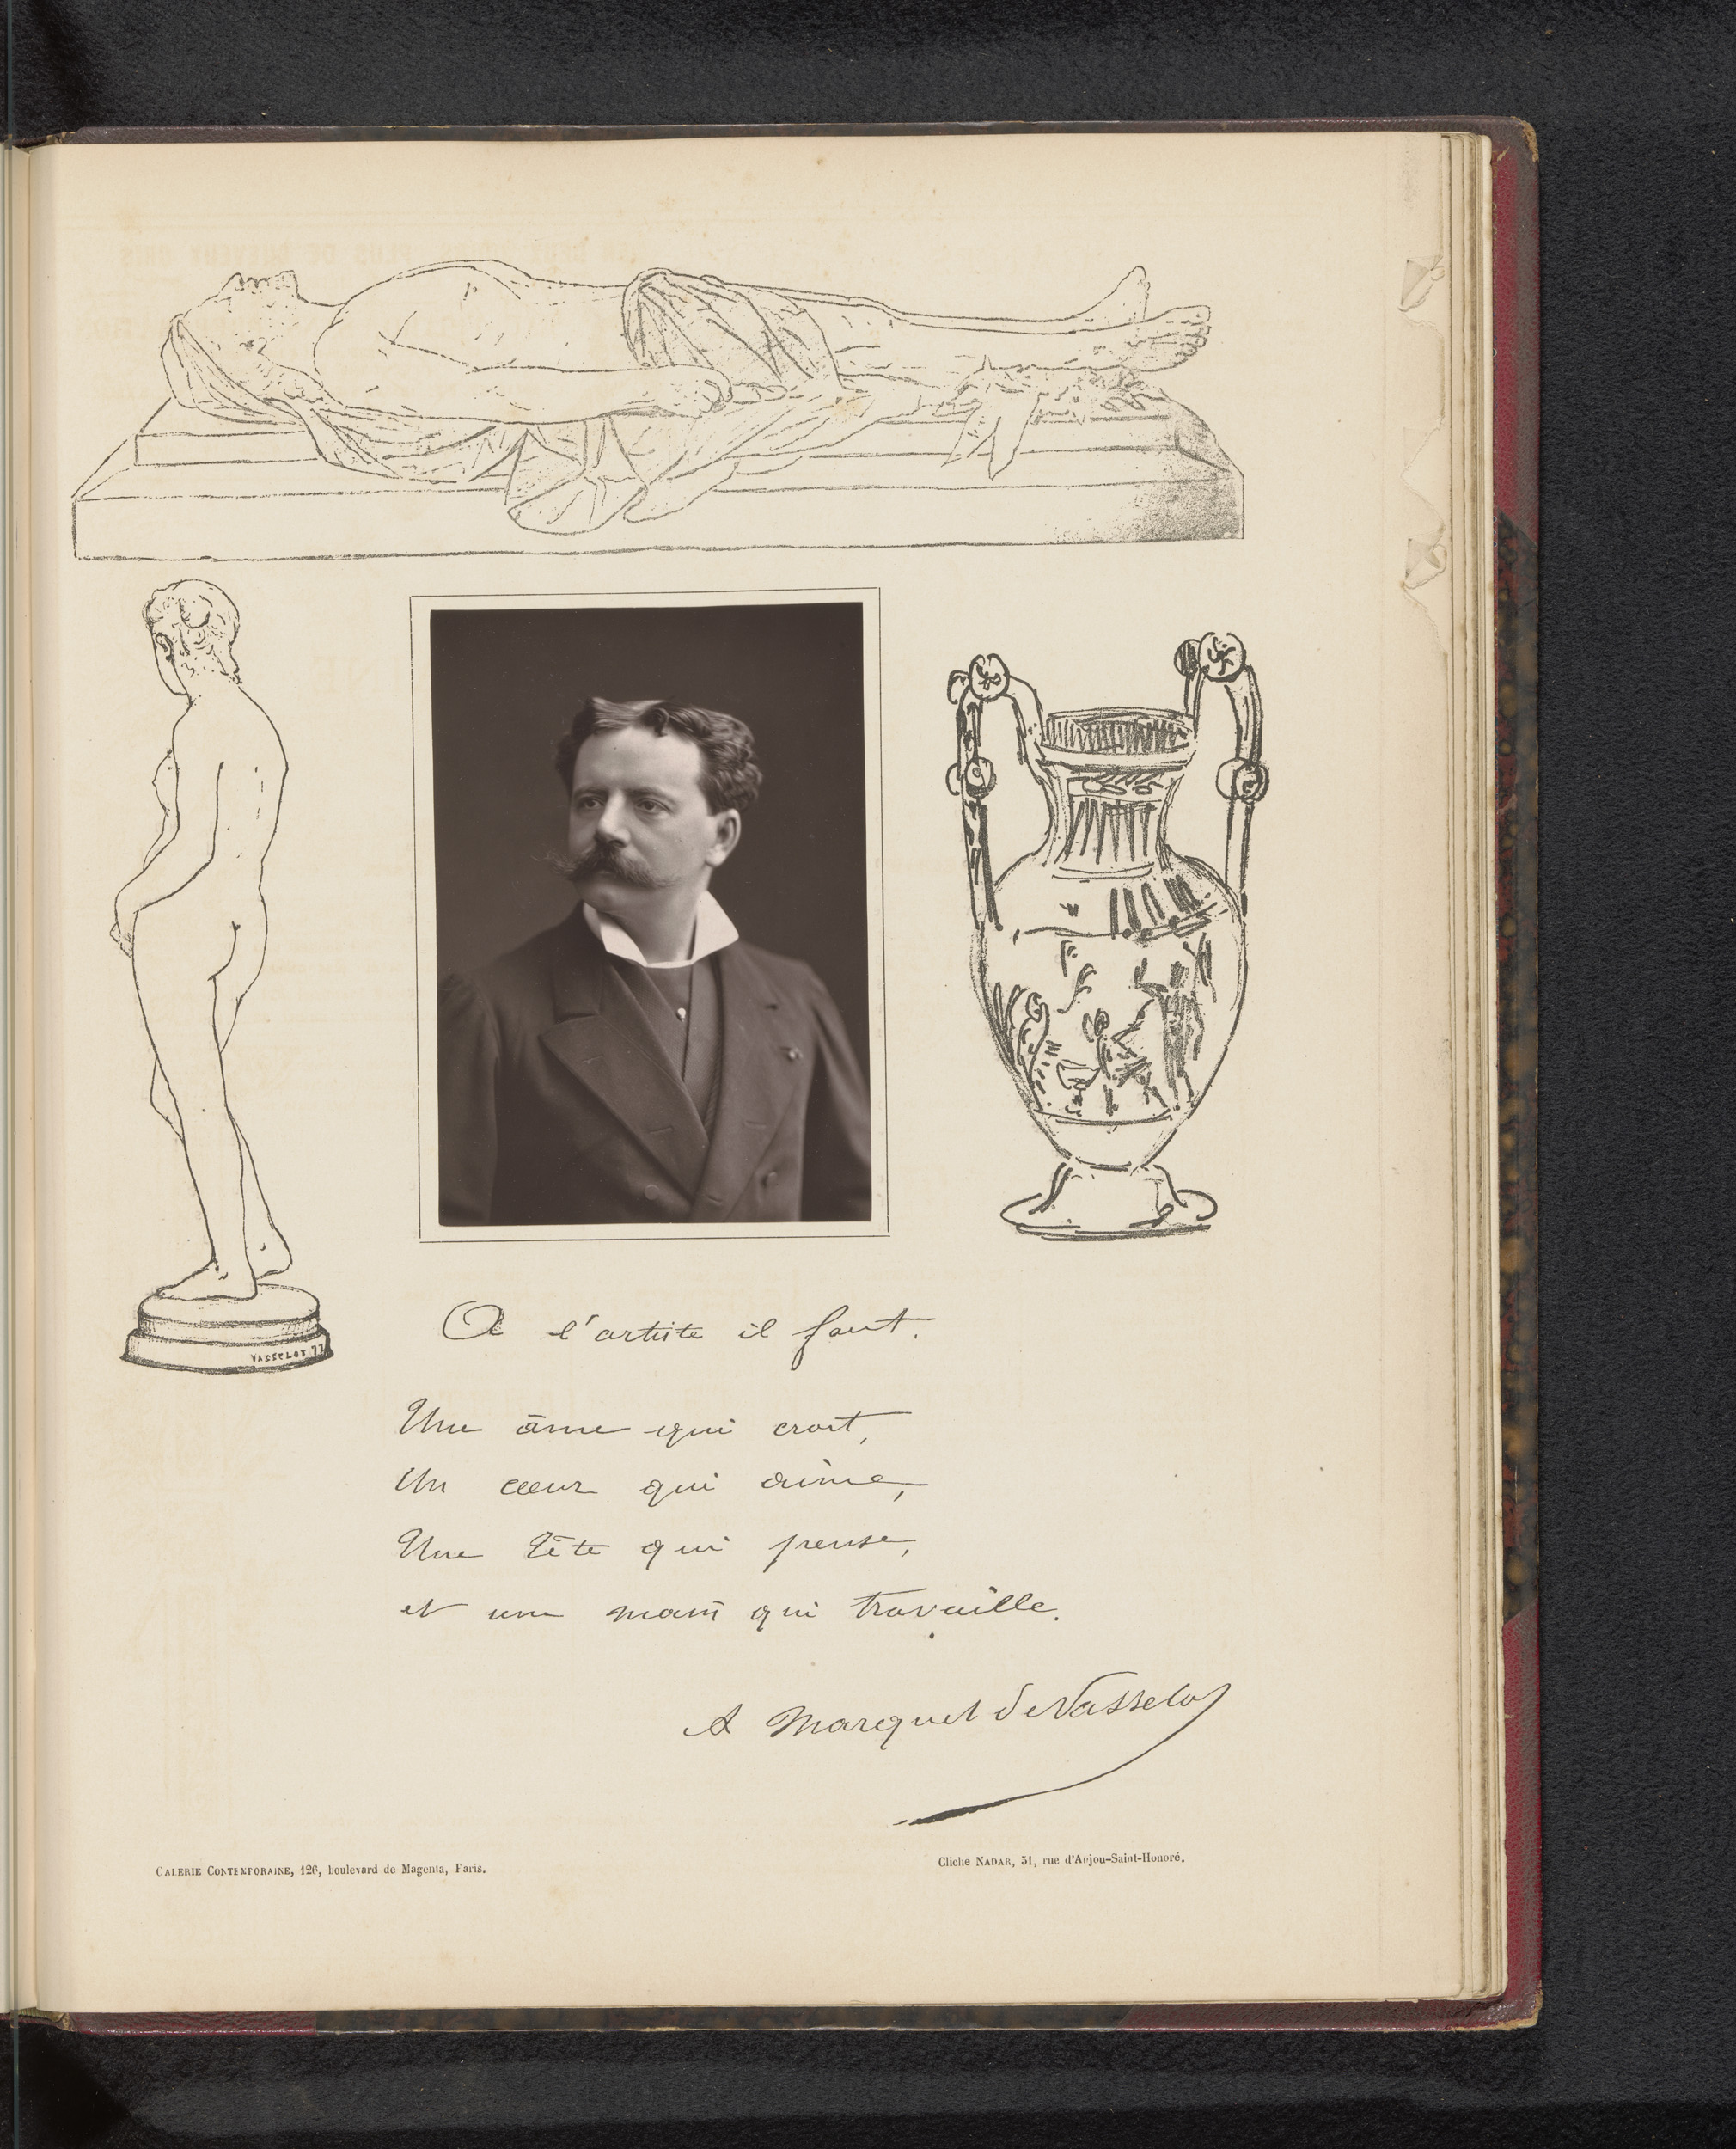 VASSELOT 77
A l'artiste il faut.
Une âme qui croit,
Un cœur qui aime,
Une tête qui pense,
et une main qui travaille.
A Marquet de Vasselot
GALERIE CONTEMPORAINE, 126, boulevard de Magenta, Paris.
Cliché NADAR, 51, rue d'Anjou-Saint-Honoré.